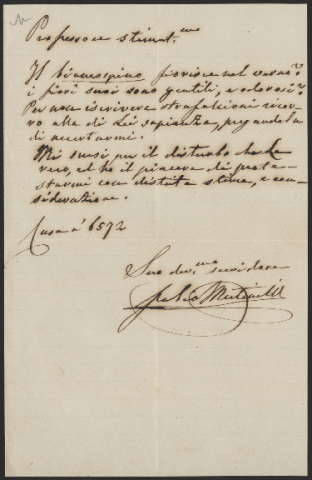 Professore stimat.mo
Il biancospino fiorisce nel vaso?
i fiori suoi sono gentili, e odorosi?
Per non iscrivere strafalcioni ricor
ro alla di Lei sapienza, pregandola
di accertarmi.
Mi scusi per il disturbo che Le
reco, ed ho il piacere di prote-
starmi con distinta stima, e con-
siderazione.
Casa n° 6572
Suo dev.mo servidore